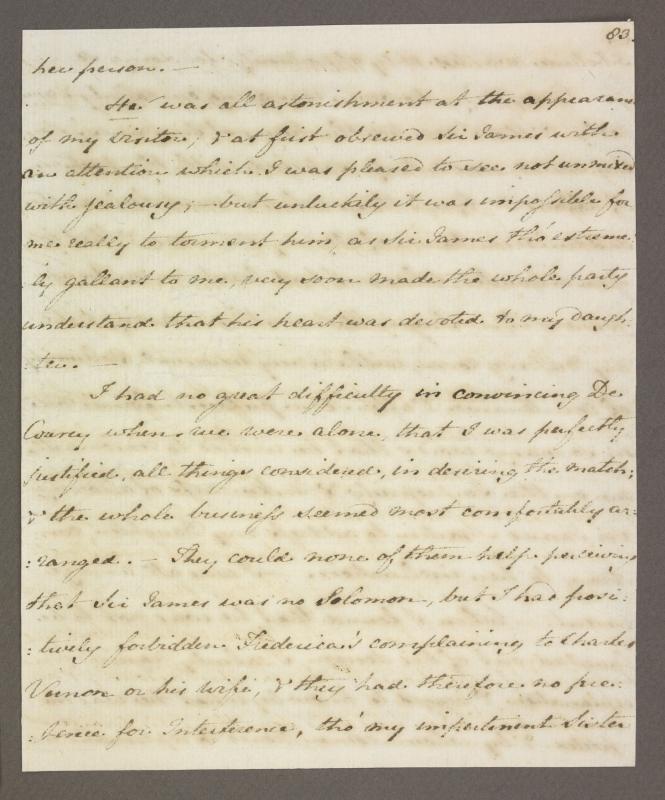 83.
her person. —
He was all astonishment at the appearance
of my visitor; & at first observed Sir James with
an attention which I was pleased to see not unmixed
with jealousy; — but unluckily it was impossible for
me really to torment him, as Sir James tho' extreme:
:ly gallant to me, very soon made the whole party
understand that his heart was devoted to my daugh:
:ter. —
I had no great difficulty in convincing De
Courcy when we were alone, that I was perfectly
justified, all things considered, in desiring the match;
& the whole business seemed most comfortably ar:
:ranged. — They could none of them help perceiving
that Sir James was no Solomon, but I had posi:
:tively forbidden Frederica's complaining to Charles
Vernon or his wife, & they had therefore no pre:
:tence for Interference, tho' my impertinent Sister